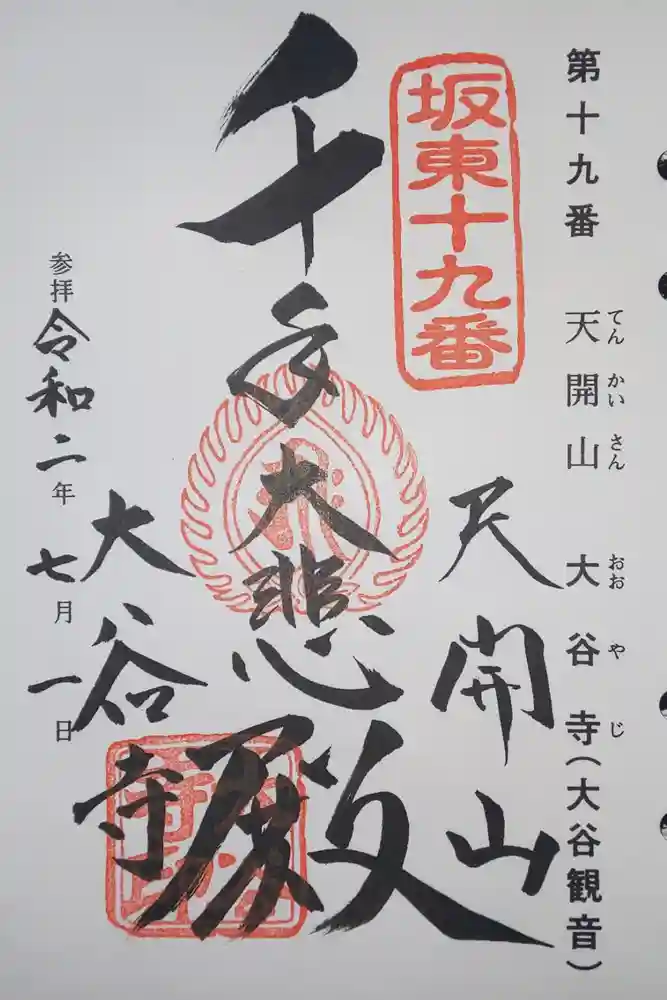 第十九番 天開山 大谷寺(大谷観音)
てんかいさん おおやじ
坂東十九番
天開山
千手大悲殿
大谷寺
参拝 令和二年 七月 一日